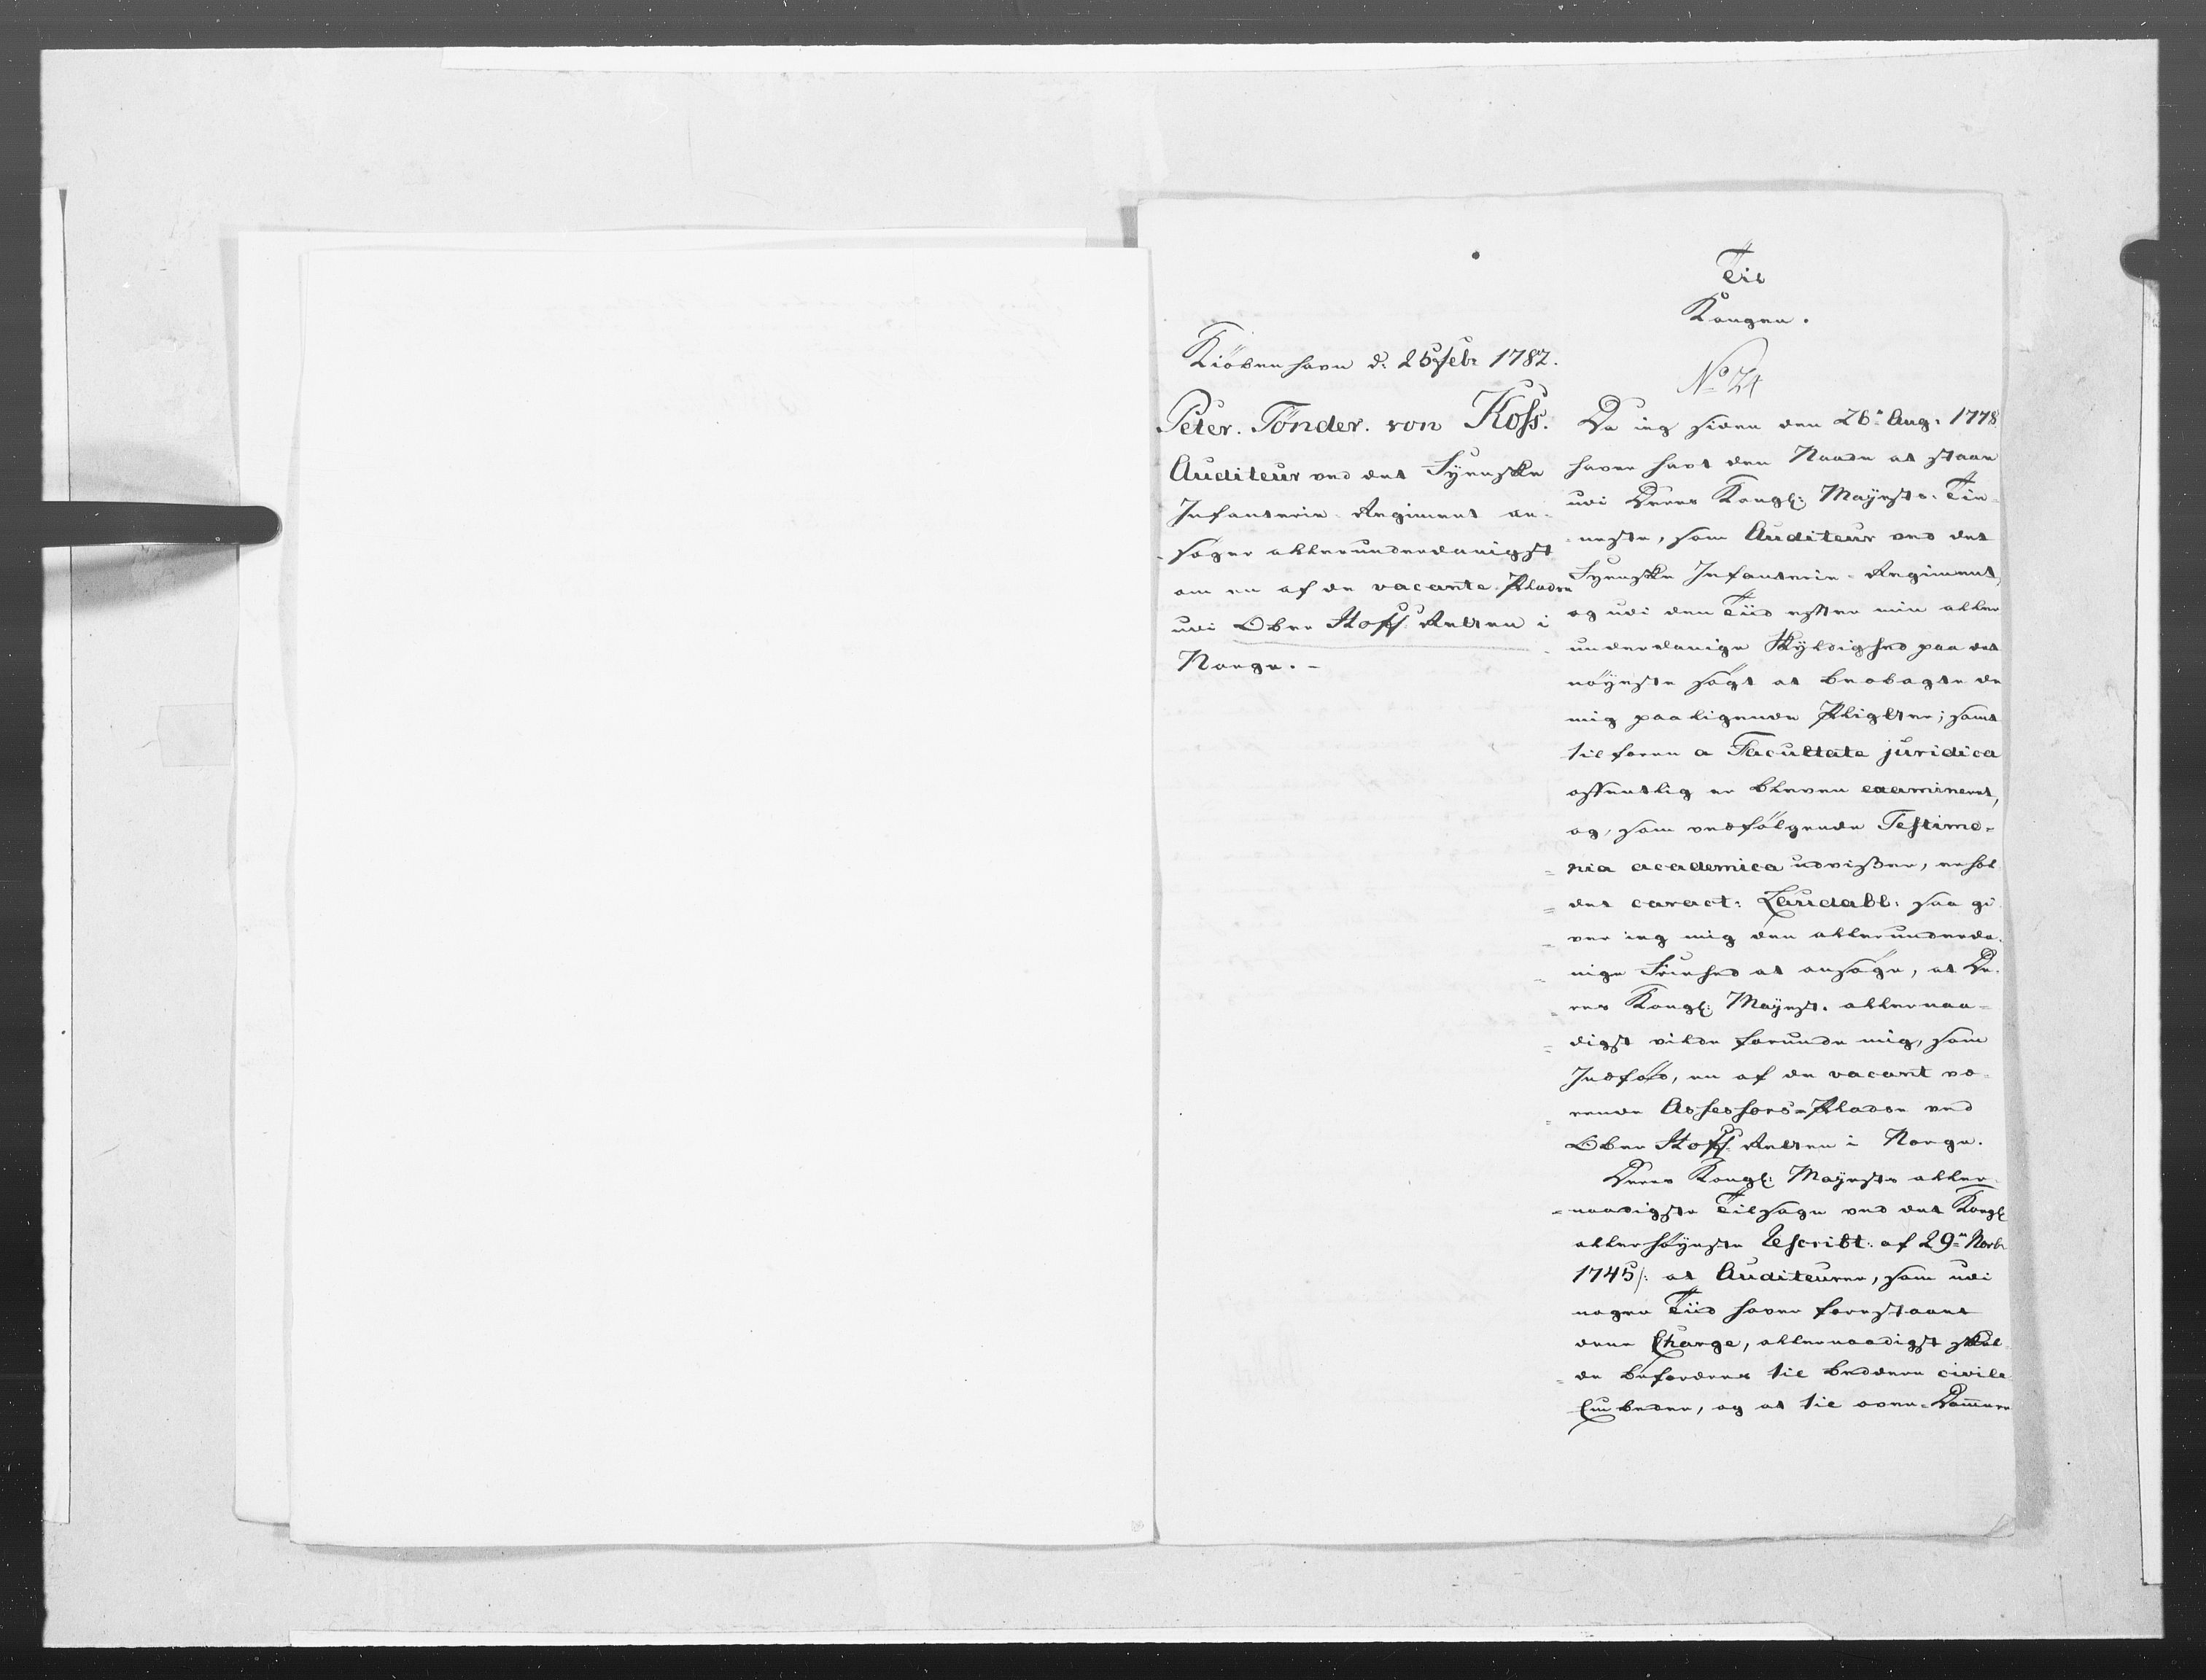 Til
Kongen.
Kiöbenhavn d: 25 Febr 1782.
No 24
Peter. Tönder. von Koss.
Auditeur ved det Fyenske
Infanterie-Regiment an-
-søger allerunderdanigst
om en af de vacante Pladse
udi Ober Hoff Retten i
Norge. -
Da ieg siden den 26de Aug: 1778
haver havt den Naade at staae
udi Deres Kongl: Mayests: Tie-
-neste, som Auditeur ved det
Fyenske Infanterie-Regiment,
og udi den Tiid efter min aller
underdanige Skyldighed paa det
nöyeste søgt at beobagte de
mig paaliggende Pligter; samt
tilforn a Facultate juridica
offentlig er bleven examineret,
og, som vedfölgende Testimo-
=nia academica udvißer, erhol
=det caract: Laudabl: saa gi
=ver ieg mig den allerunderda-
-nige Friehed at ansøge, at De-
=res Kongl: Mayest. allernaa-
=digst vilde forunde mig, som
Indfød, en af de vacant væ-
=rende Assessors-Pladse ved
Ober Hoff Retten i Norge.
Deres Kongl: Mayests aller-
=naadigste Tilsagn ved det Kongl
allerhöyeste Rescribt: af 29de Novbr
1745/: at Auditeurer, som udi
nogen Tiid haver forestaaet
denne Charge, allernaadigst skul-
=de befordres til bedere civile
Embeder, og at til overe-Dommere